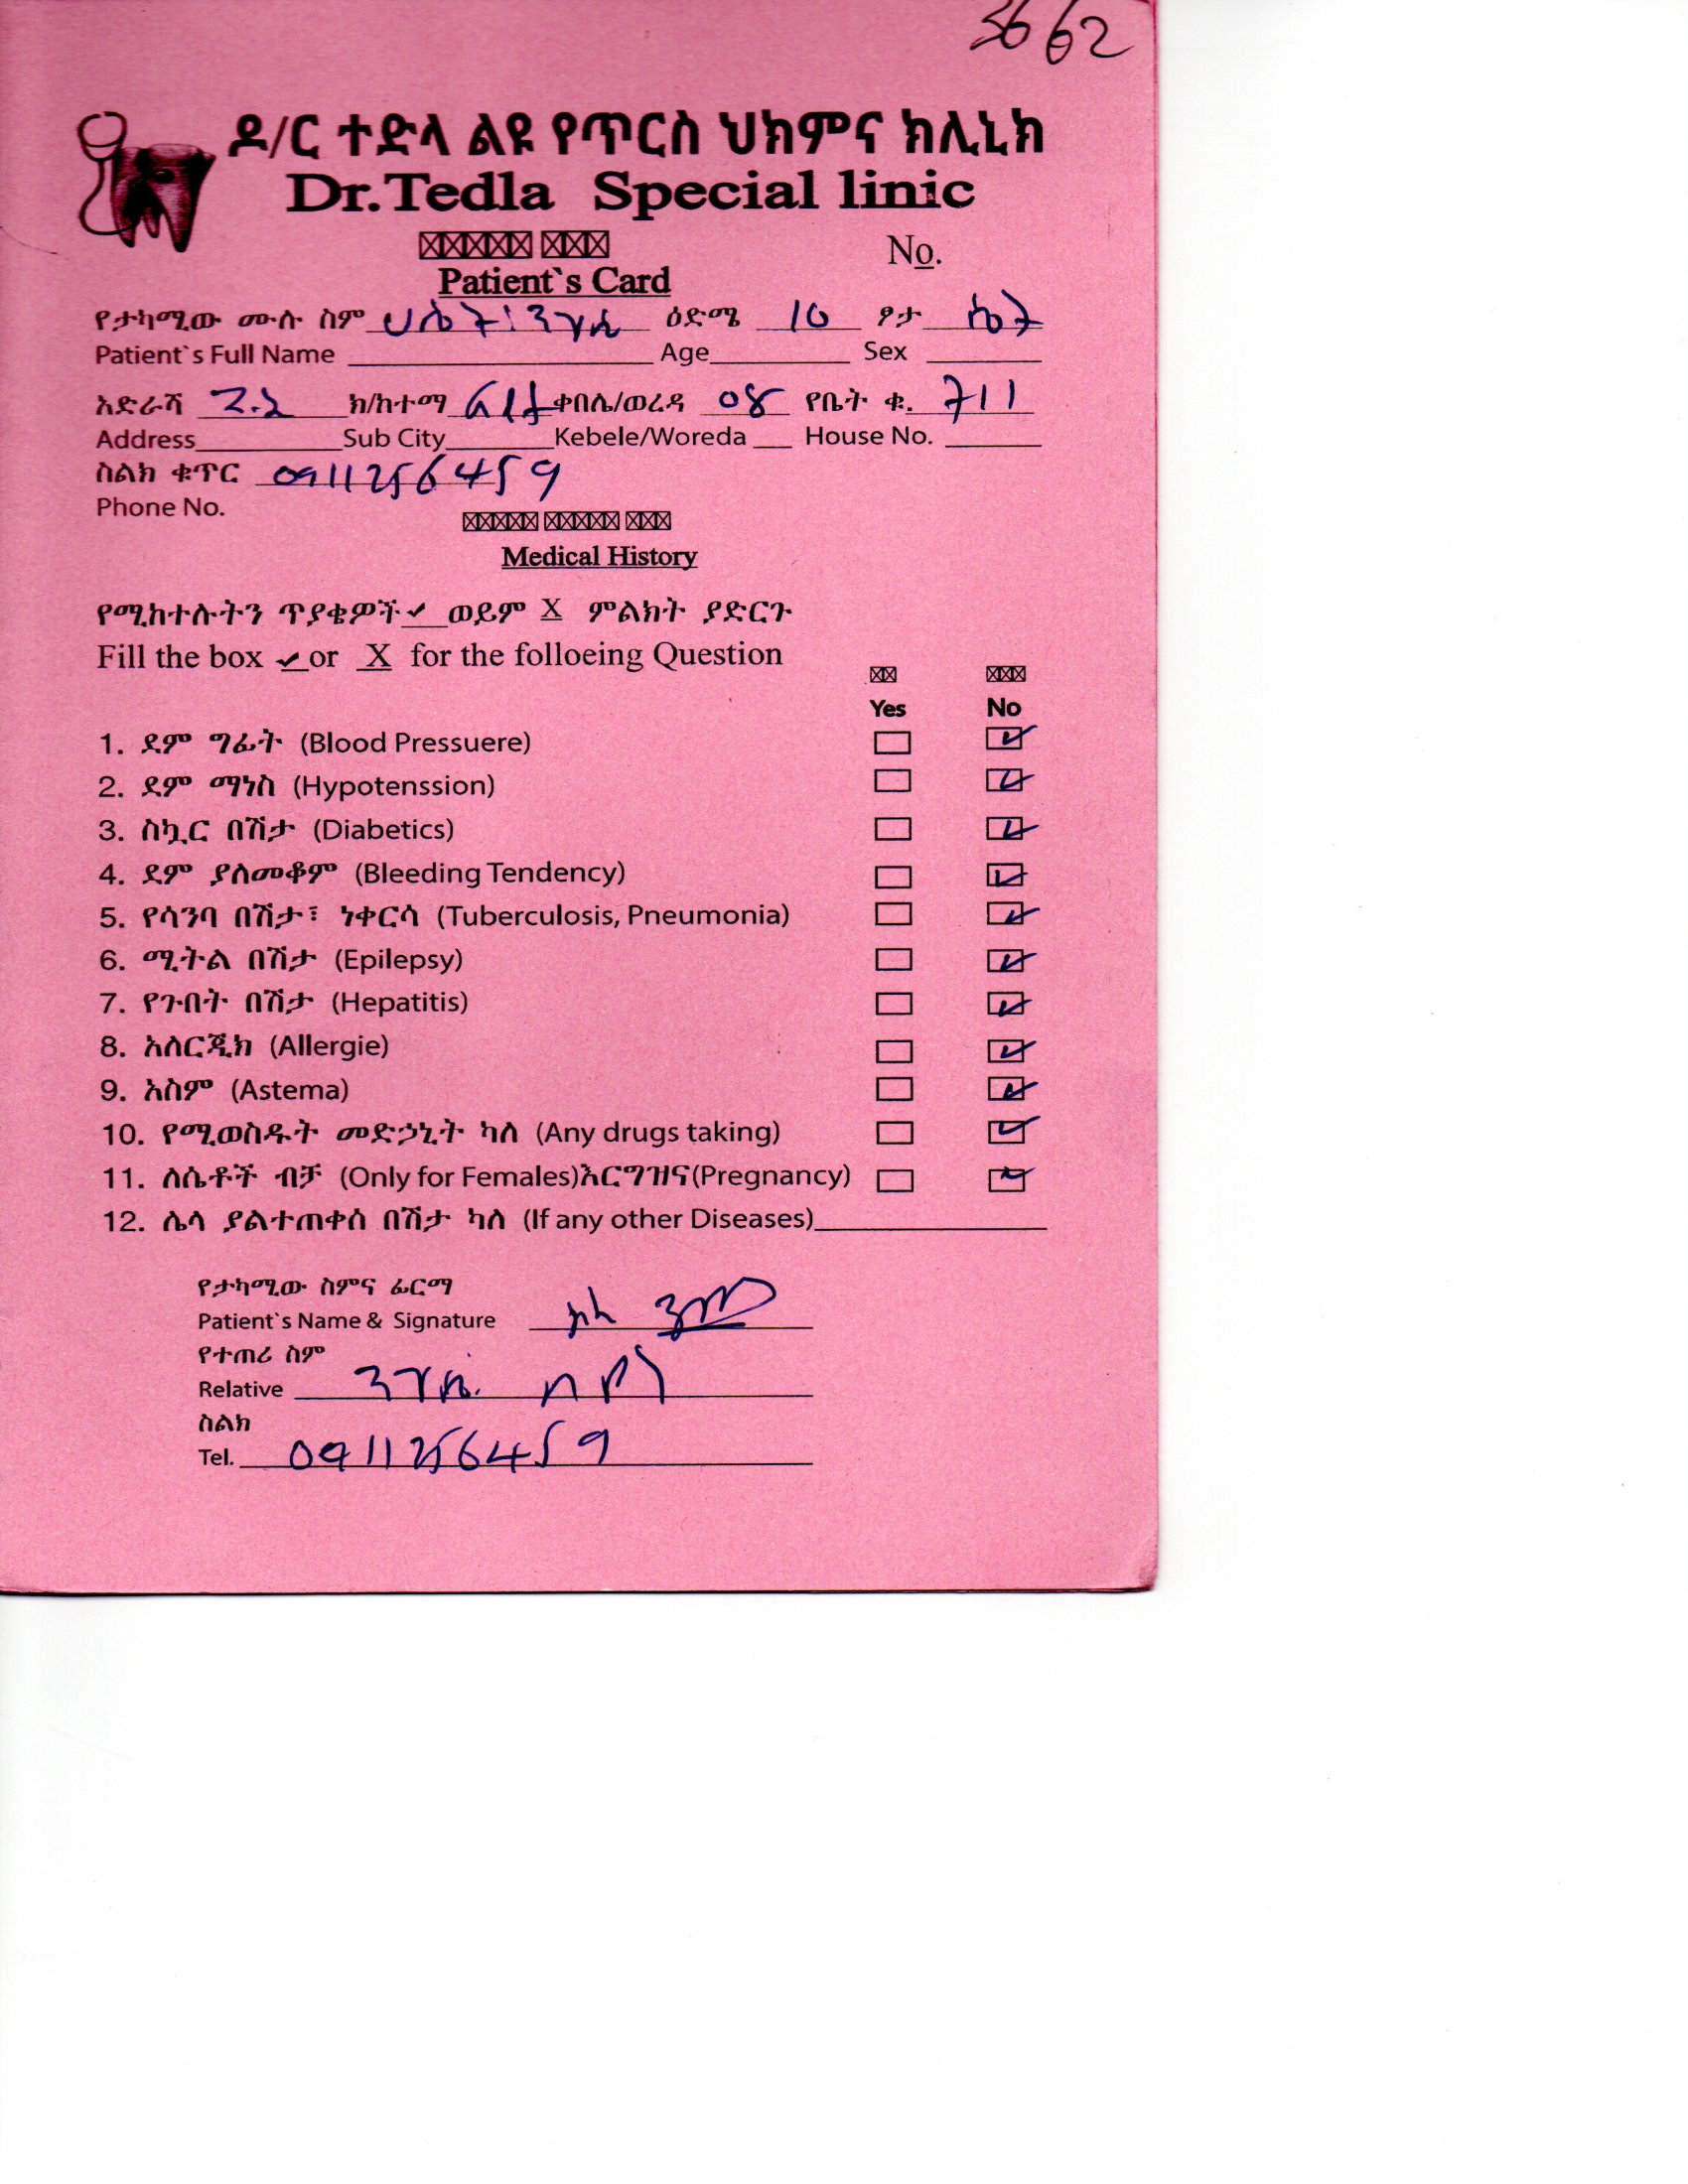 3662
ዶ/ር ተድላ ልዩ የጥርስ ህክምና ክሊኒክ
Dr.Tedla Special linic
No.
Patient`s Card
የታካሚው ሙሉ ስም ዕድሜ 10 ፆታ ሴት
Patient`s Full Name Age Sex
አድራሻ ክ/ከተማ ቀበሌ/ወረዳ 08 የቤት ቁ. 711
Address Sub City Kebele/Woreda House No.
ስልክ ቁጥር 0911256459
Phone No.
Medical History
የሚከተሉትን ጥያቄዎች ✓ ወይም X ምልክት ያድርጉ
Fill the box ✓ or X for the folloeing Question
Yes No
1. ደም ግፊት (Blood Pressuere)
2. ደም ማነስ (Hypotenssion)
3. ስኳር በሽታ (Diabetics)
4. ደም ያለመቆም (Bleeding Tendency)
5. የሳንባ በሽታ፣ ነቀርሳ (Tuberculosis, Pneumonia)
6. ሚትል በሽታ (Epilepsy)
7. የጉበት በሽታ (Hepatitis)
8. አለርጂክ (Allergie)
9. አስም (Astema)
10. የሚወስዱት መድኃኒት ካለ (Any drugs taking)
11. ለሴቶች ብቻ (Only for Females)እርግዝና(Pregnancy)
12. ሌላ ያልተጠቀሰ በሽታ ካለ (If any other Diseases)
የታካሚው ስምና ፊርማ
Patient`s Name & Signature
የተጠሪ ስም
Relative
ስልክ
Tel. 0911256459